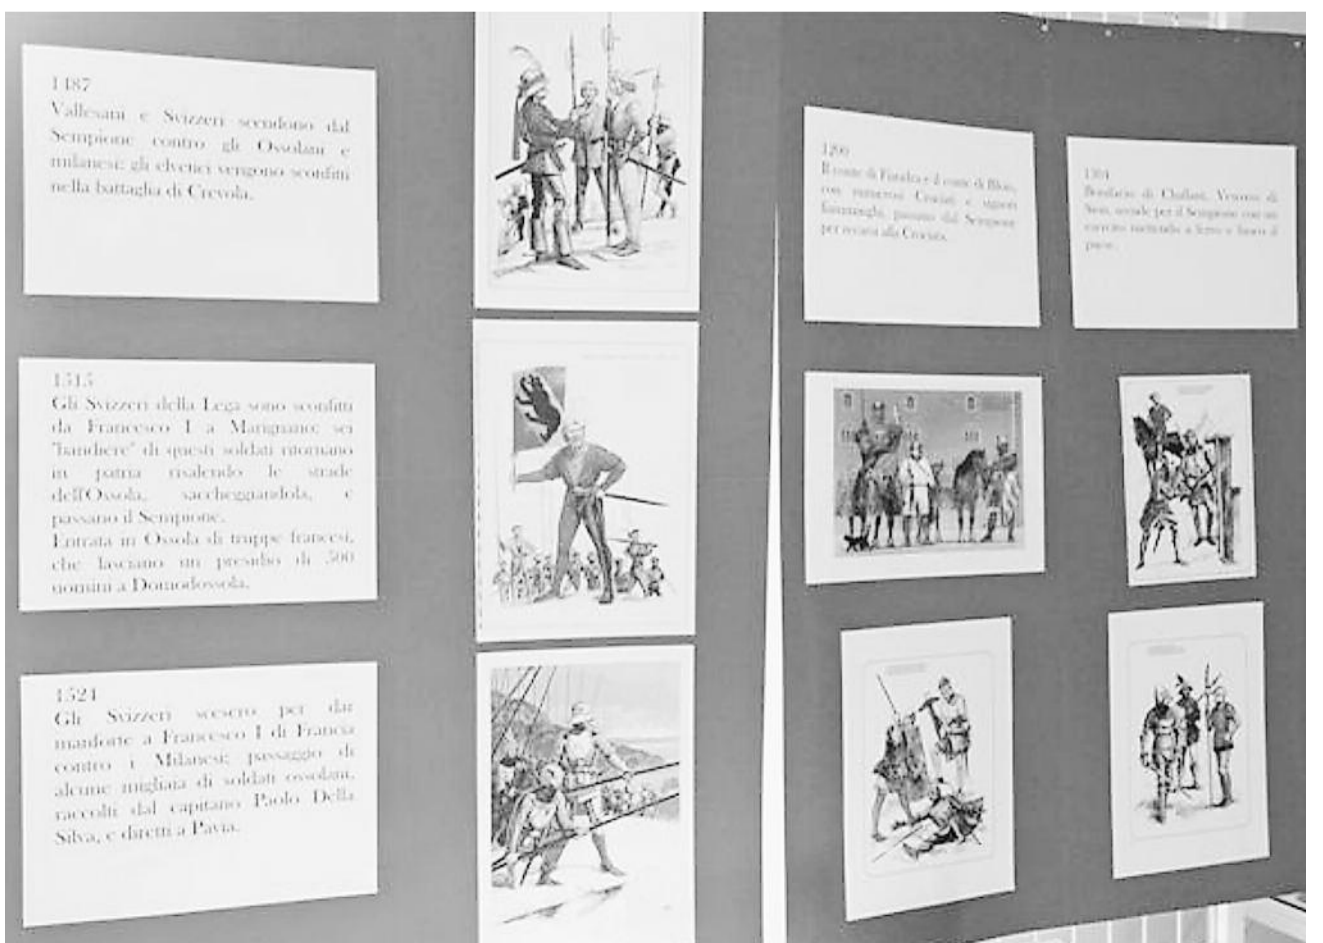 1487
Vallesani e Svizzeri scendono dal
Sempione contro gli Ossolani e
milanesi; gli elvetici vengono sconfitti
nella battaglia di Crevola.
1515
Gli Svizzeri della Lega sono sconfitti
da Francesco I a Marignano; sei
"bandiere" di questi soldati ritornano
in patria risalendo le strade
dell'Ossola, saccheggiandola, e
passano il Sempione.
Entrata in Ossola di truppe francesi,
che lasciano un presidio di 500
uomini a Domodossola.
1524
Gli Svizzeri scesero per dar
manforte a Francesco I di Francia
contro i Milanesi; passaggio di
alcune migliaia di soldati ossolani,
raccolti dal capitano Paolo Della
Silva, e diretti a Pavia.
Il conte di Fiandra e il conte di Blois,
con numerosi Crociati e signori
passano dal Sempione
per recarsi alla Crociata.
Bonifacio di Challant, Vescovo di
Sion, scende per il Sempione con un
esercito mettendo a ferro e fuoco il
paese.